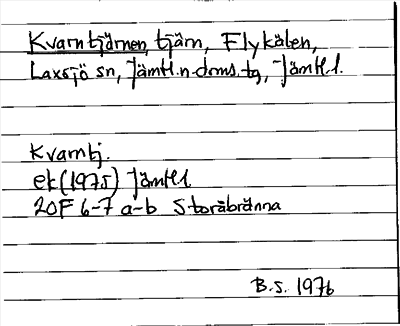 Kvarntjärnen, tjärn, Flykälen,
Laxsjö sn, Jämtl.n.doms.tg, Jämtl.l.
Kvarntj.
ek (1975) Jämtl.l
20F 6-7 a-b Storåbränna
B.S. 1976